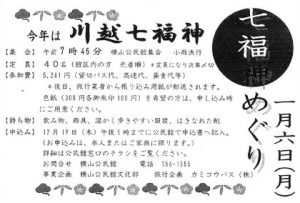 七福神めぐり
一月六日(月)
今年は 川越七福神
【集 合】 午前7時45分 横山公民館集合 小雨決行
【定 員】 40名(館区内の方 先着順) *定員になり次第〆切
【参加費】 5,261円(貸切バス代、高速代、昼食代等)
*後日、旅行業者から振り込み用紙が郵送されます。
色紙(300円各御朱印100円)を希望の方は、申し込み時
にご用意ください。
【持ち物】 飲み物、雨具、温かく歩きやすい服装、はきなれた靴
【申込み】 12月19日(木)午後5時までに公民館で申込書へ記入。
(お申込みは、本人またはご家族に限ります。)
詳細は公民館窓口のチラシをご覧ください。
お問合せ 横山公民館 電話 756-1555
事業企画 横山公民館文化部 旅行企画 カミコウバス(株)